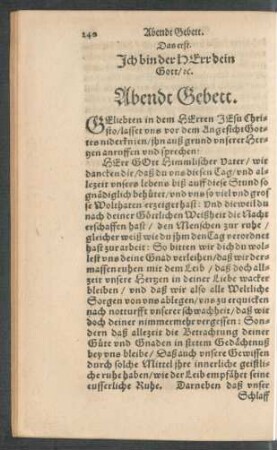 240
Abendt Gebett.
Das erst.
Ich bin der HErr dein
Gott / ꝛc.
Abendt Gebett.
GEliebten in dem HErren JEsu Chri-
sto / lasset vns vor dem Angesicht Got-
tes niderknien / jhn auß grund vnserer Her-
tzen anruffen vnd sprechen:
HErr GOtt Himmlischer Vater / wir
dancken dir / daß du vns diesen Tag / vnd al-
lezeit vnsers lebens biß auff diese Stund so
gnädiglich behütet / vnd vns so viel vnd gros-
se Wolthaten erzeiget hast: Vnd dieweil du
nach deiner Göttlichen Weißheit die Nacht
erschaffen hast / den Menschen zur ruhe /
gleicher weiß wie du jhm den Tag verordnet
hast zur arbeit: So bitten wir dich du wol-
lest vns deine Gnad verleihen / daß wir der-
massen ruhen mit dem Leib / daß doch all-
zeit vnsere Hertzen in deiner Liebe wacker
bleiben / vnd daß wir also alle Weltliche
Sorgen von vns ablegen / vns zu erquicken
nach notturfft vnserer schwachheit / daß wir
doch deiner nimmermehr vergessen: Son-
dern daß allezeit die Betrachtung deiner
Güte vnd Gnaden in stetem Gedächtnuß
bey vns bleibe / Daß auch vnsere Gewissen
durch solche Mittel jhre innerliche geistli-
che ruhe haben / wie der Leib empfähet seine
eusserliche Ruhe. Darneben daß vnser
Schlaff